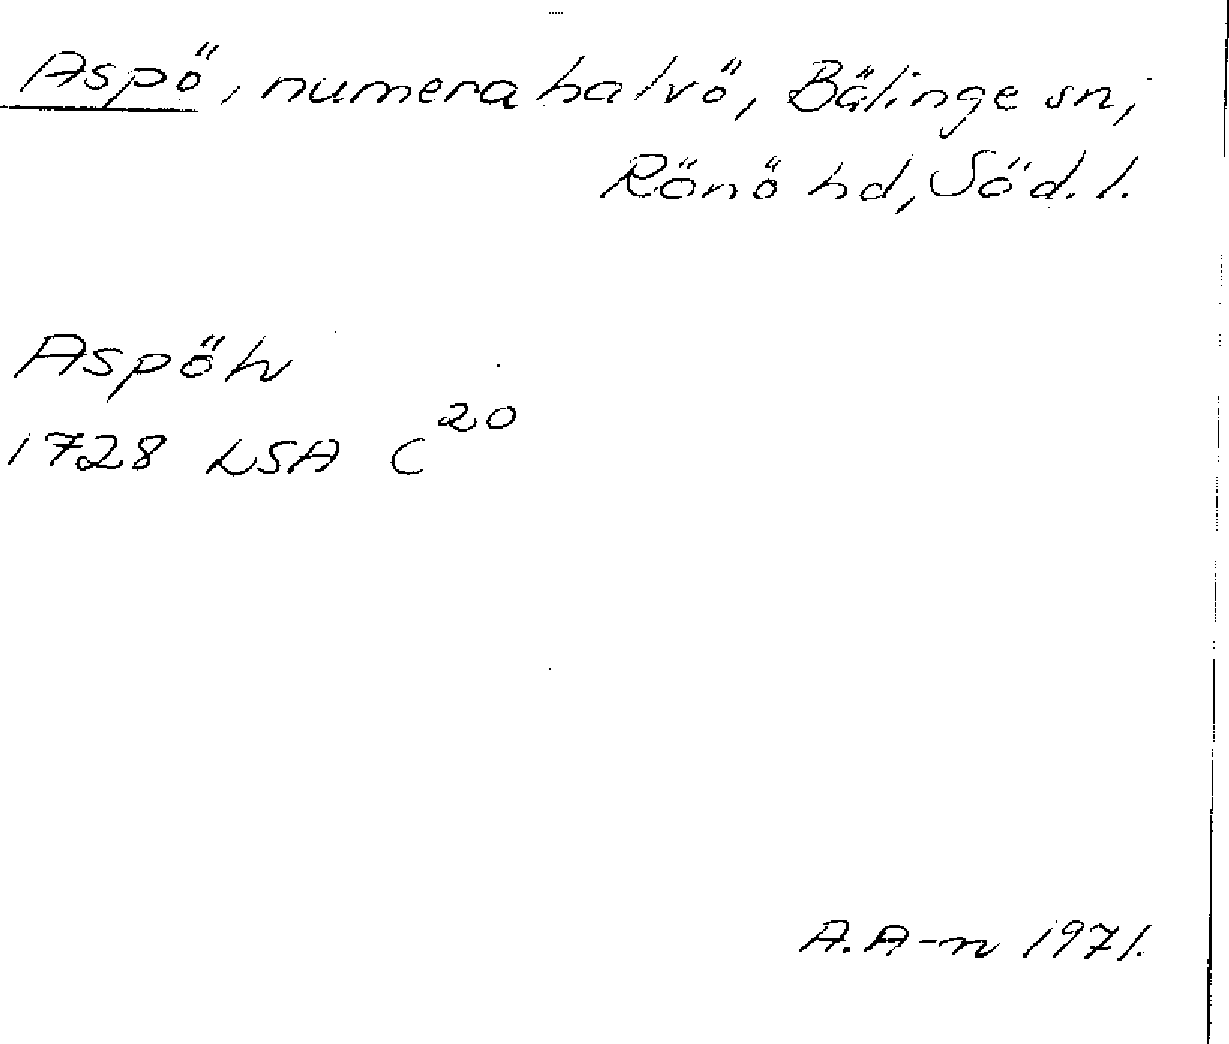 Aspö, numera halvö, Bälinge sn,
Rönö hd, Söd. l.
Aspöh
1728 LSA C²⁰
A. A-n 1971.